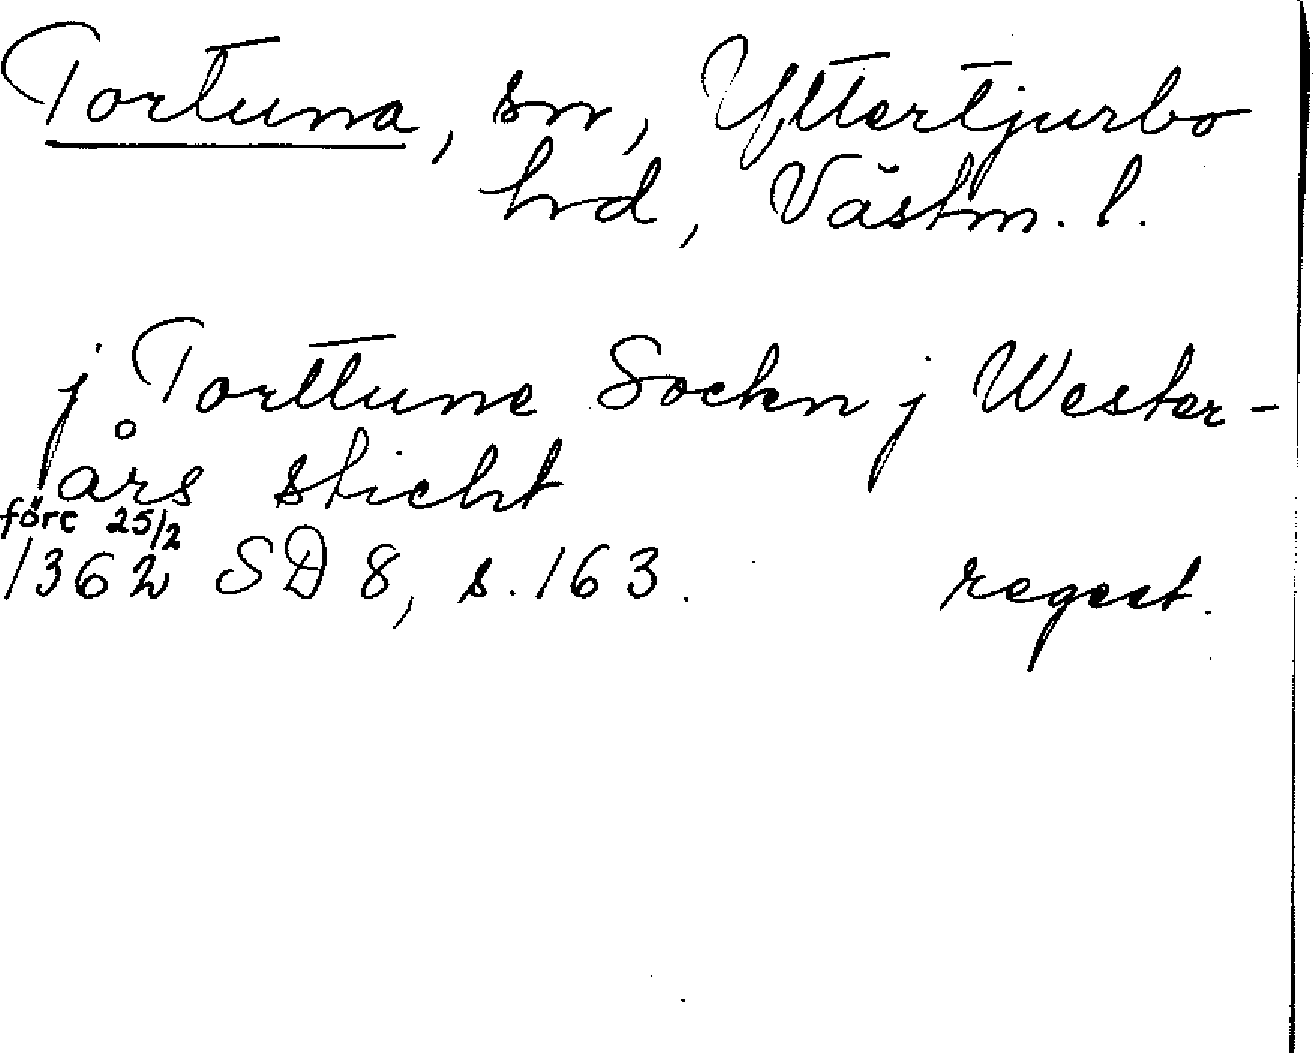 Tortuna, sn, Yttertjurbo
hrd, Västm. l.
j Torttune Sockn j Wester-
års sticht
före 25/2
1362 SD 8, s. 163. regest.